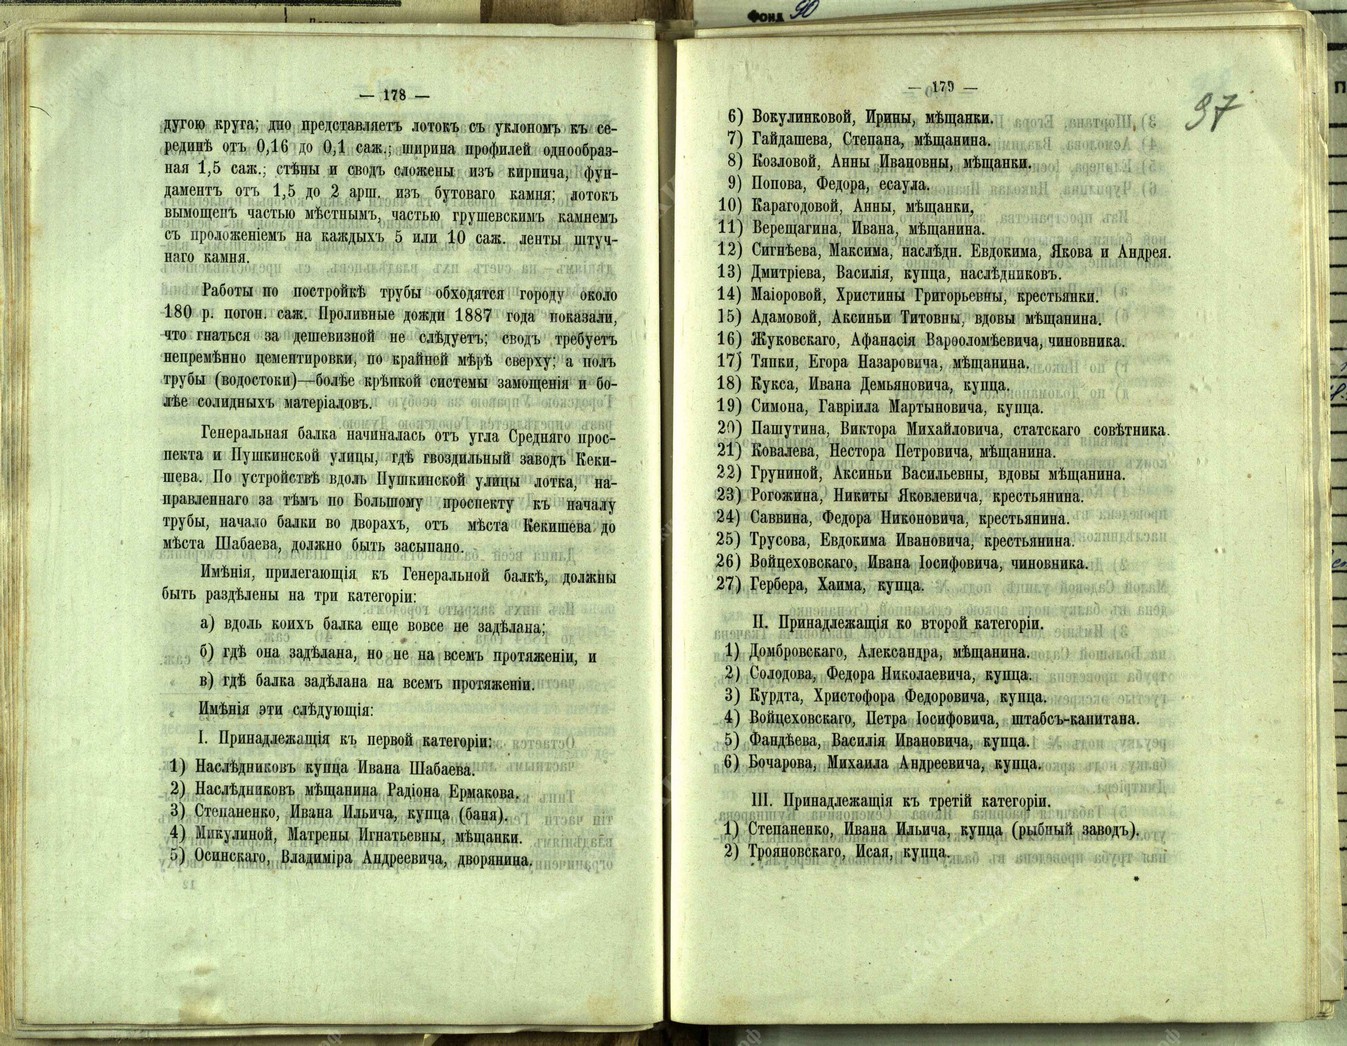 Фонд 90
— 178 —
дугою круга; дно представляетъ лотокъ съ уклономъ къ се-
рединѣ отъ 0,16 до 0,1 саж.; ширина профилей однообраз-
ная 1,5 саж.; стѣны и сводъ сложены изъ кирпича, фун-
даментъ отъ 1,5 до 2 арш. изъ бутоваго камня; лотокъ
вымощенъ частью мѣстнымъ, частью грушевскимъ камнемъ
съ проложеніемъ на каждыхъ 5 или 10 саж. ленты штуч-
наго камня.
Работы по постройкѣ трубы обходятся городу около
180 р. погон. саж. Проливные дожди 1887 года показали,
что гнаться за дешевизной не слѣдуетъ; сводъ требуетъ
непремѣнно цементировки, по крайней мѣрѣ сверху; а полъ
трубы (водостоки)—болѣе крѣпкой системы замощенія и бо-
лѣе солидныхъ матеріаловъ.
Генеральная балка начиналась отъ угла Средняго прос-
пекта и Пушкинской улицы, гдѣ гвоздильный заводъ Кеки-
шева. По устройствѣ вдоль Пушкинской улицы лотка, на-
правленнаго за тѣмъ по Большому проспекту къ началу
трубы, начало балки во дворахъ, отъ мѣста Кекишева до
мѣста Шабаева, должно быть засыпано.
Имѣнія, прилегающія къ Генеральной балкѣ, должны
быть раздѣлены на три категоріи:
а) вдоль коихъ балка еще вовсе не задѣлана;
б) гдѣ она задѣлана, но не на всемъ протяженіи, и
в) гдѣ балка задѣлана на всемъ протяженіи.
Имѣнія эти слѣдующія:
I. Принадлежащія къ первой категоріи:
1) Наслѣдниковъ купца Ивана Шабаева.
2) Наслѣдниковъ мѣщанина Радіона Ермакова.
3) Степаненко, Ивана Ильича, купца (баня).
4) Микулиной, Матрены Игнатьевны, мѣщанки.
5) Осинскаго, Владиміра Андреевича, дворянина.
— 179 —
97
6) Вокулинковой, Ирины, мѣщанки.
7) Гайдашева, Степана, мѣщанина.
8) Козловой, Анны Ивановны, мѣщанки.
9) Попова, Федора, есаула.
10) Карагодовой, Анны, мѣщанки,
11) Верещагина, Ивана, мѣщанина.
12) Сигнѣева, Максима, наслѣдн. Евдокима, Якова и Андрея.
13) Дмитріева, Василія, купца, наслѣдниковъ.
14) Маіоровой, Христины Григорьевны, крестьянки.
15) Адамовой, Аксиньи Титовны, вдовы мѣщанина.
16) Жуковскаго, Афанасія Варѳоломѣевича, чиновника.
17) Тяпки, Егора Назаровича, мѣщанина.
18) Кукса, Ивана Демьяновича, купца.
19) Симона, Гавріила Мартыновича, купца.
20) Пашутина, Виктора Михайловича, статскаго совѣтника.
21) Ковалева, Нестора Петровича, мѣщанина.
22) Груниной, Аксиньи Васильевны, вдовы мѣщанина.
23) Рогожина, Никиты Яковлевича, крестьянина.
24) Саввина, Федора Никоновича, крестьянина.
25) Трусова, Евдокима Ивановича, крестьянина.
26) Войцеховскаго, Ивана Іосифовича, чиновника.
27) Гербера, Хаима, купца.
II. Принадлежащія ко второй категоріи.
1) Домбровскаго, Александра, мѣщанина.
2) Солодова, Федора Николаевича, купца.
3) Курдта, Христофора Федоровича, купца.
4) Войцеховскаго, Петра Іосифовича, штабсъ-капитана.
5) Фандѣева, Василія Ивановича, купца.
6) Бочарова, Михаила Андреевича, купца.
III. Принадлежащія къ третій категоріи.
1) Степаненко, Ивана Ильича, купца (рыбный заводъ).
2) Трояновскаго, Исая, купца.